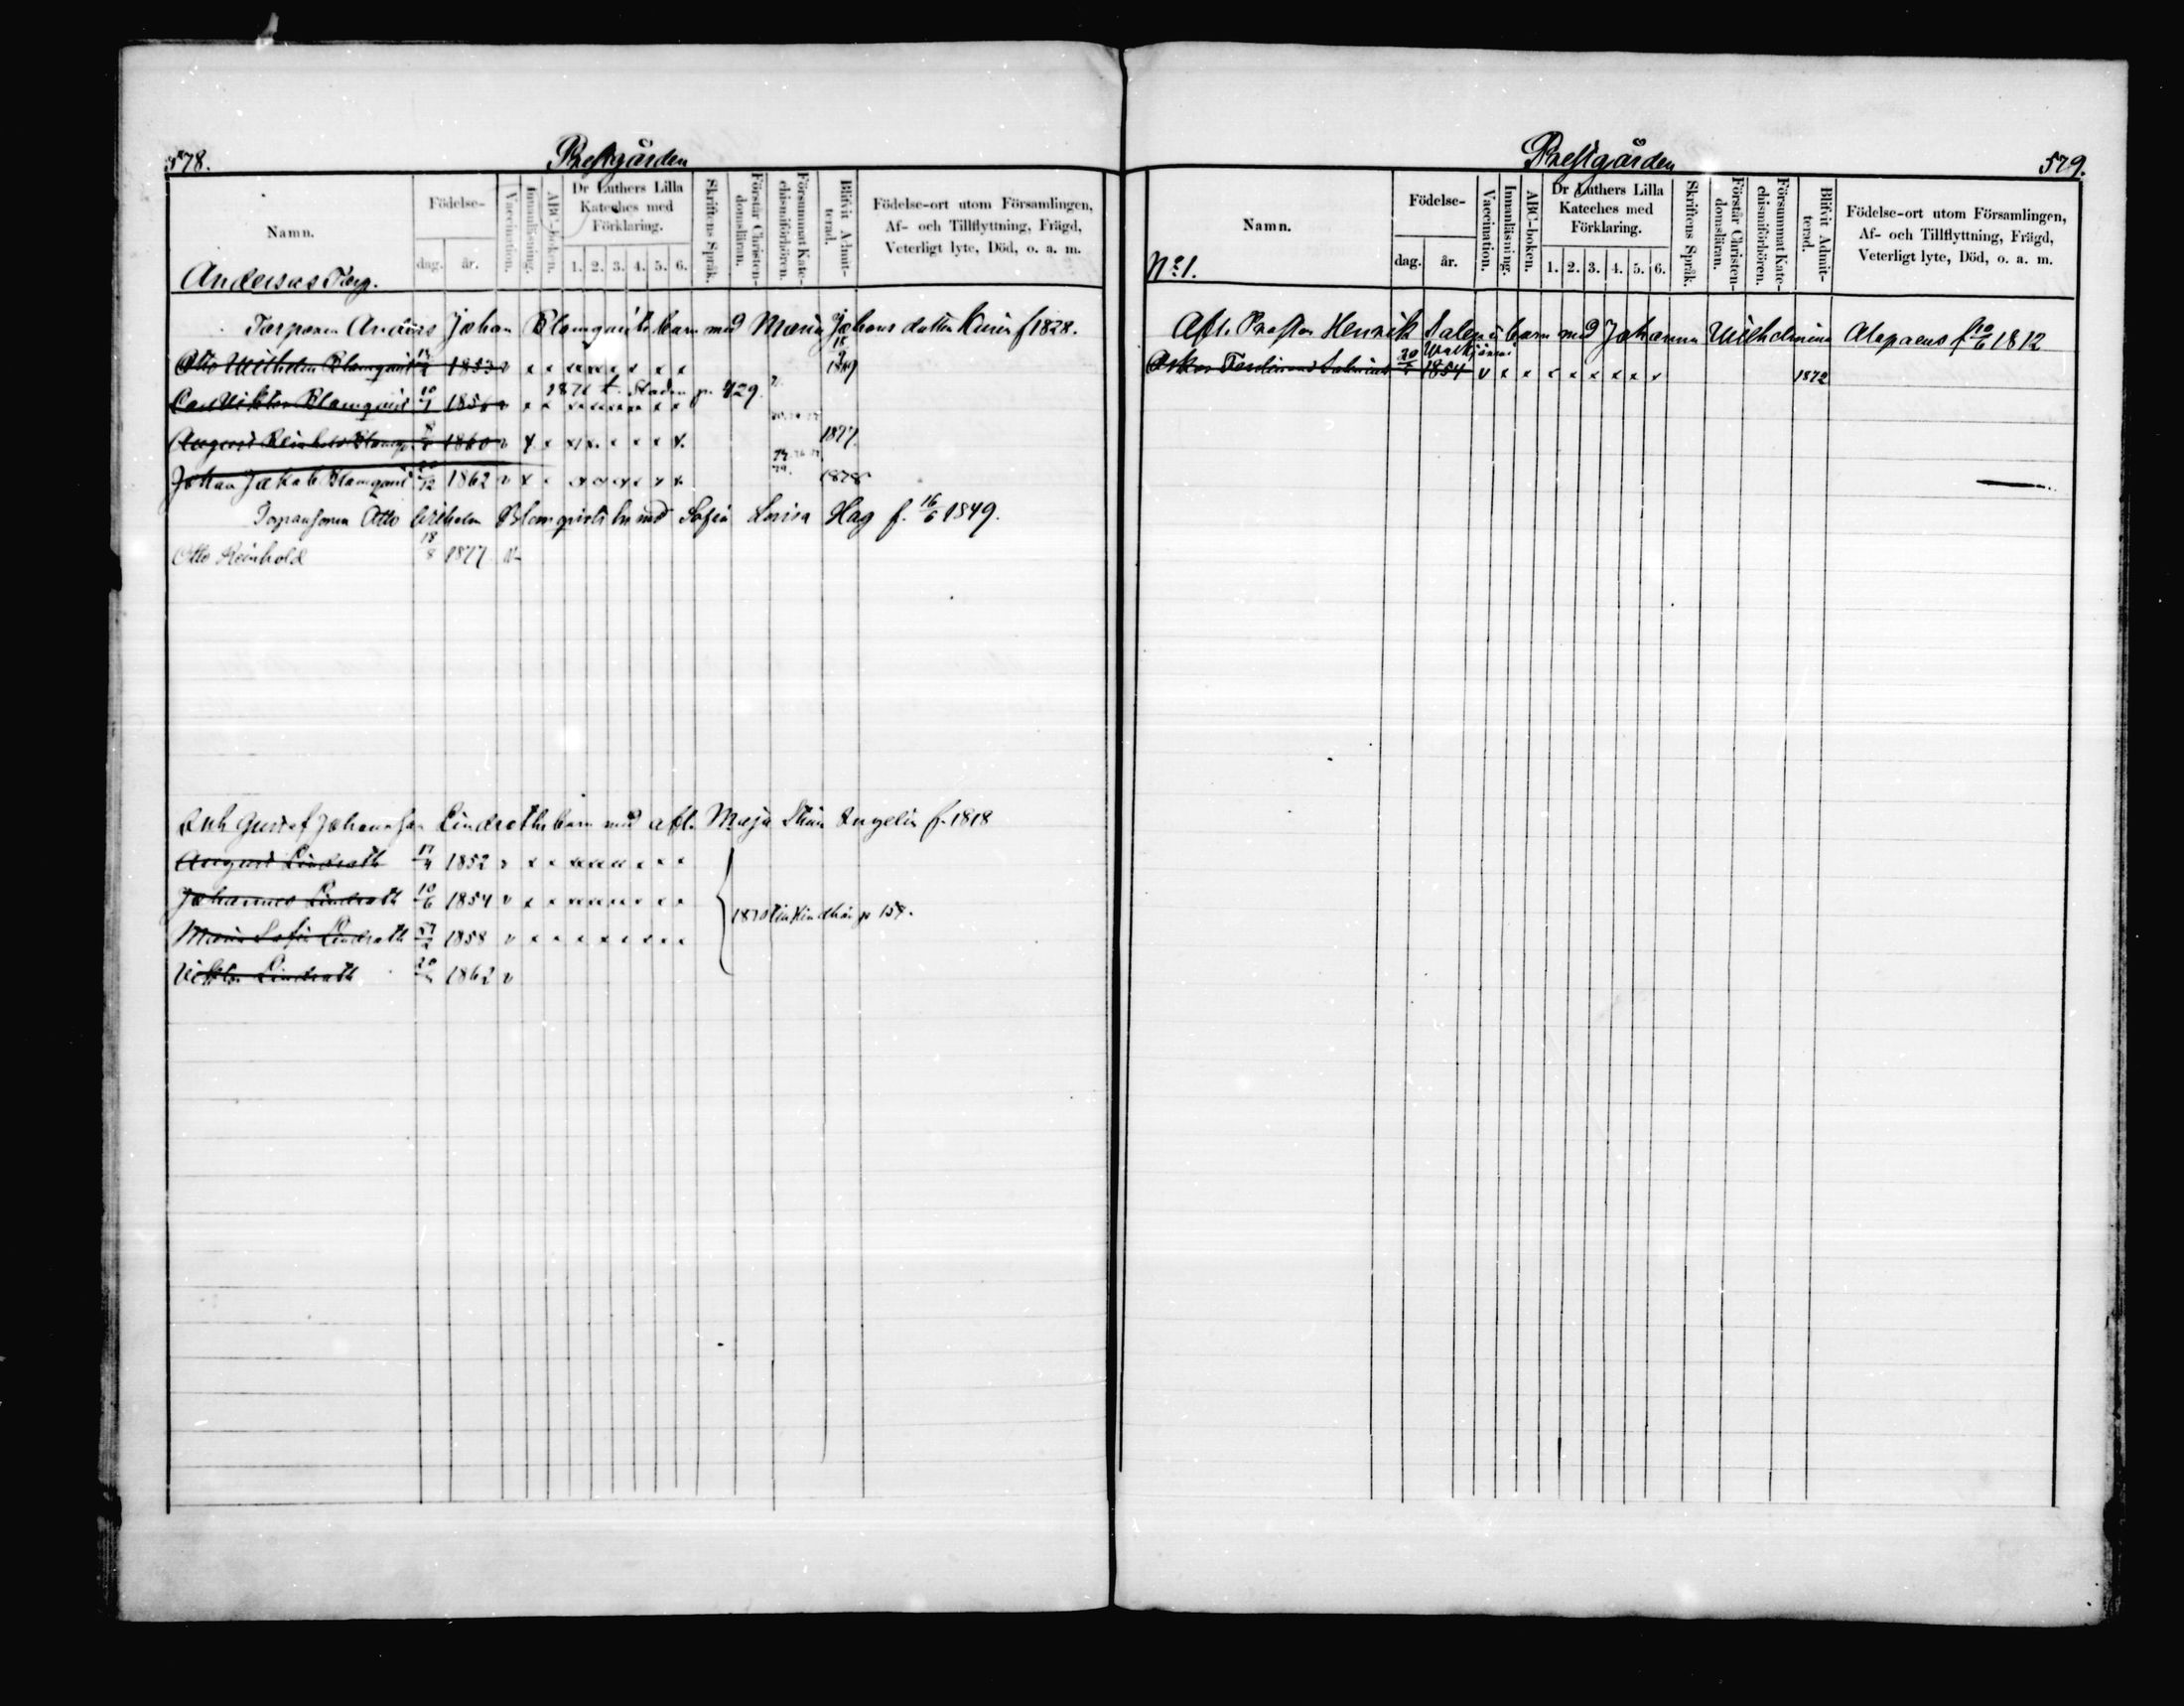 578.
Prestgården
Namn.
Födelse-
dag.
år.
Vaccination.
Innanläsning.
ABC-boken.
Dr Luthers Lilla
Kateches med
Förklaring.
1. 2. 3. 4. 5. 6.
Skriftens Språk.
Förstår Christen-
domsläran.
Försummat Kate-
chismiförhören.
Blifvit Admit-
terad.
Födelse-ort utom Församlingen,
Af- och Tillflyttning, Frägd,
Veterligt lyte, Död, o. a. m.
Andersas Torp.
Torparen Anders Johan Blomqvists barn med Maria Johans dotter f 1828.
Otto Wilhelm Blomqvist 1853 v x x x x x x x x 1869
1871 t. Staden p. 429.
Carl Viktor Blomqvist v x x x x x x x x
August Reinhold Blomq. 1860 v x x x x x x x x 1877.
Johan Jakob Blomqvist 1862 v x x x x x x x x 1878
Torparsonen Otto Wilhelm Blomqvists br med Sofia Lovisa Hag f. 16/6 1849.
Otto Reinhold 18/8 1877
Gustaf Johansson Lindroths barn med afl. Maja Stina f. 1818
August Lindroth 17/4 1852 v x x x x x x x x
Johannes Lindroth 10/6 1854 v x x x x x x x x
1870 p 158.
Maria Sofia Lindroth 1858 v x x x x x x x x
Viktor Lindroth 1862 v
Prestgården
579.
Namn.
Födelse-
dag.
år.
Vaccination.
Innanläsning.
ABC-boken.
Dr Luthers Lilla
Kateches med
Förklaring.
1. 2. 3. 4. 5. 6.
Skriftens Språk.
Förstår Christen-
domsläran.
Försummat Kate-
chismiförhören.
Blifvit Admit-
terad.
Födelse-ort utom Församlingen,
Af- och Tillflyttning, Frägd,
Veterligt lyte, Död, o. a. m.
No 1.
Afl. Prosten Henrik Salenii barn med Johanna Wilhelmina Alopaeus f 10/6 1812
Oskar Ferdinand Salenius 1854 v x x x x x x x x 1872